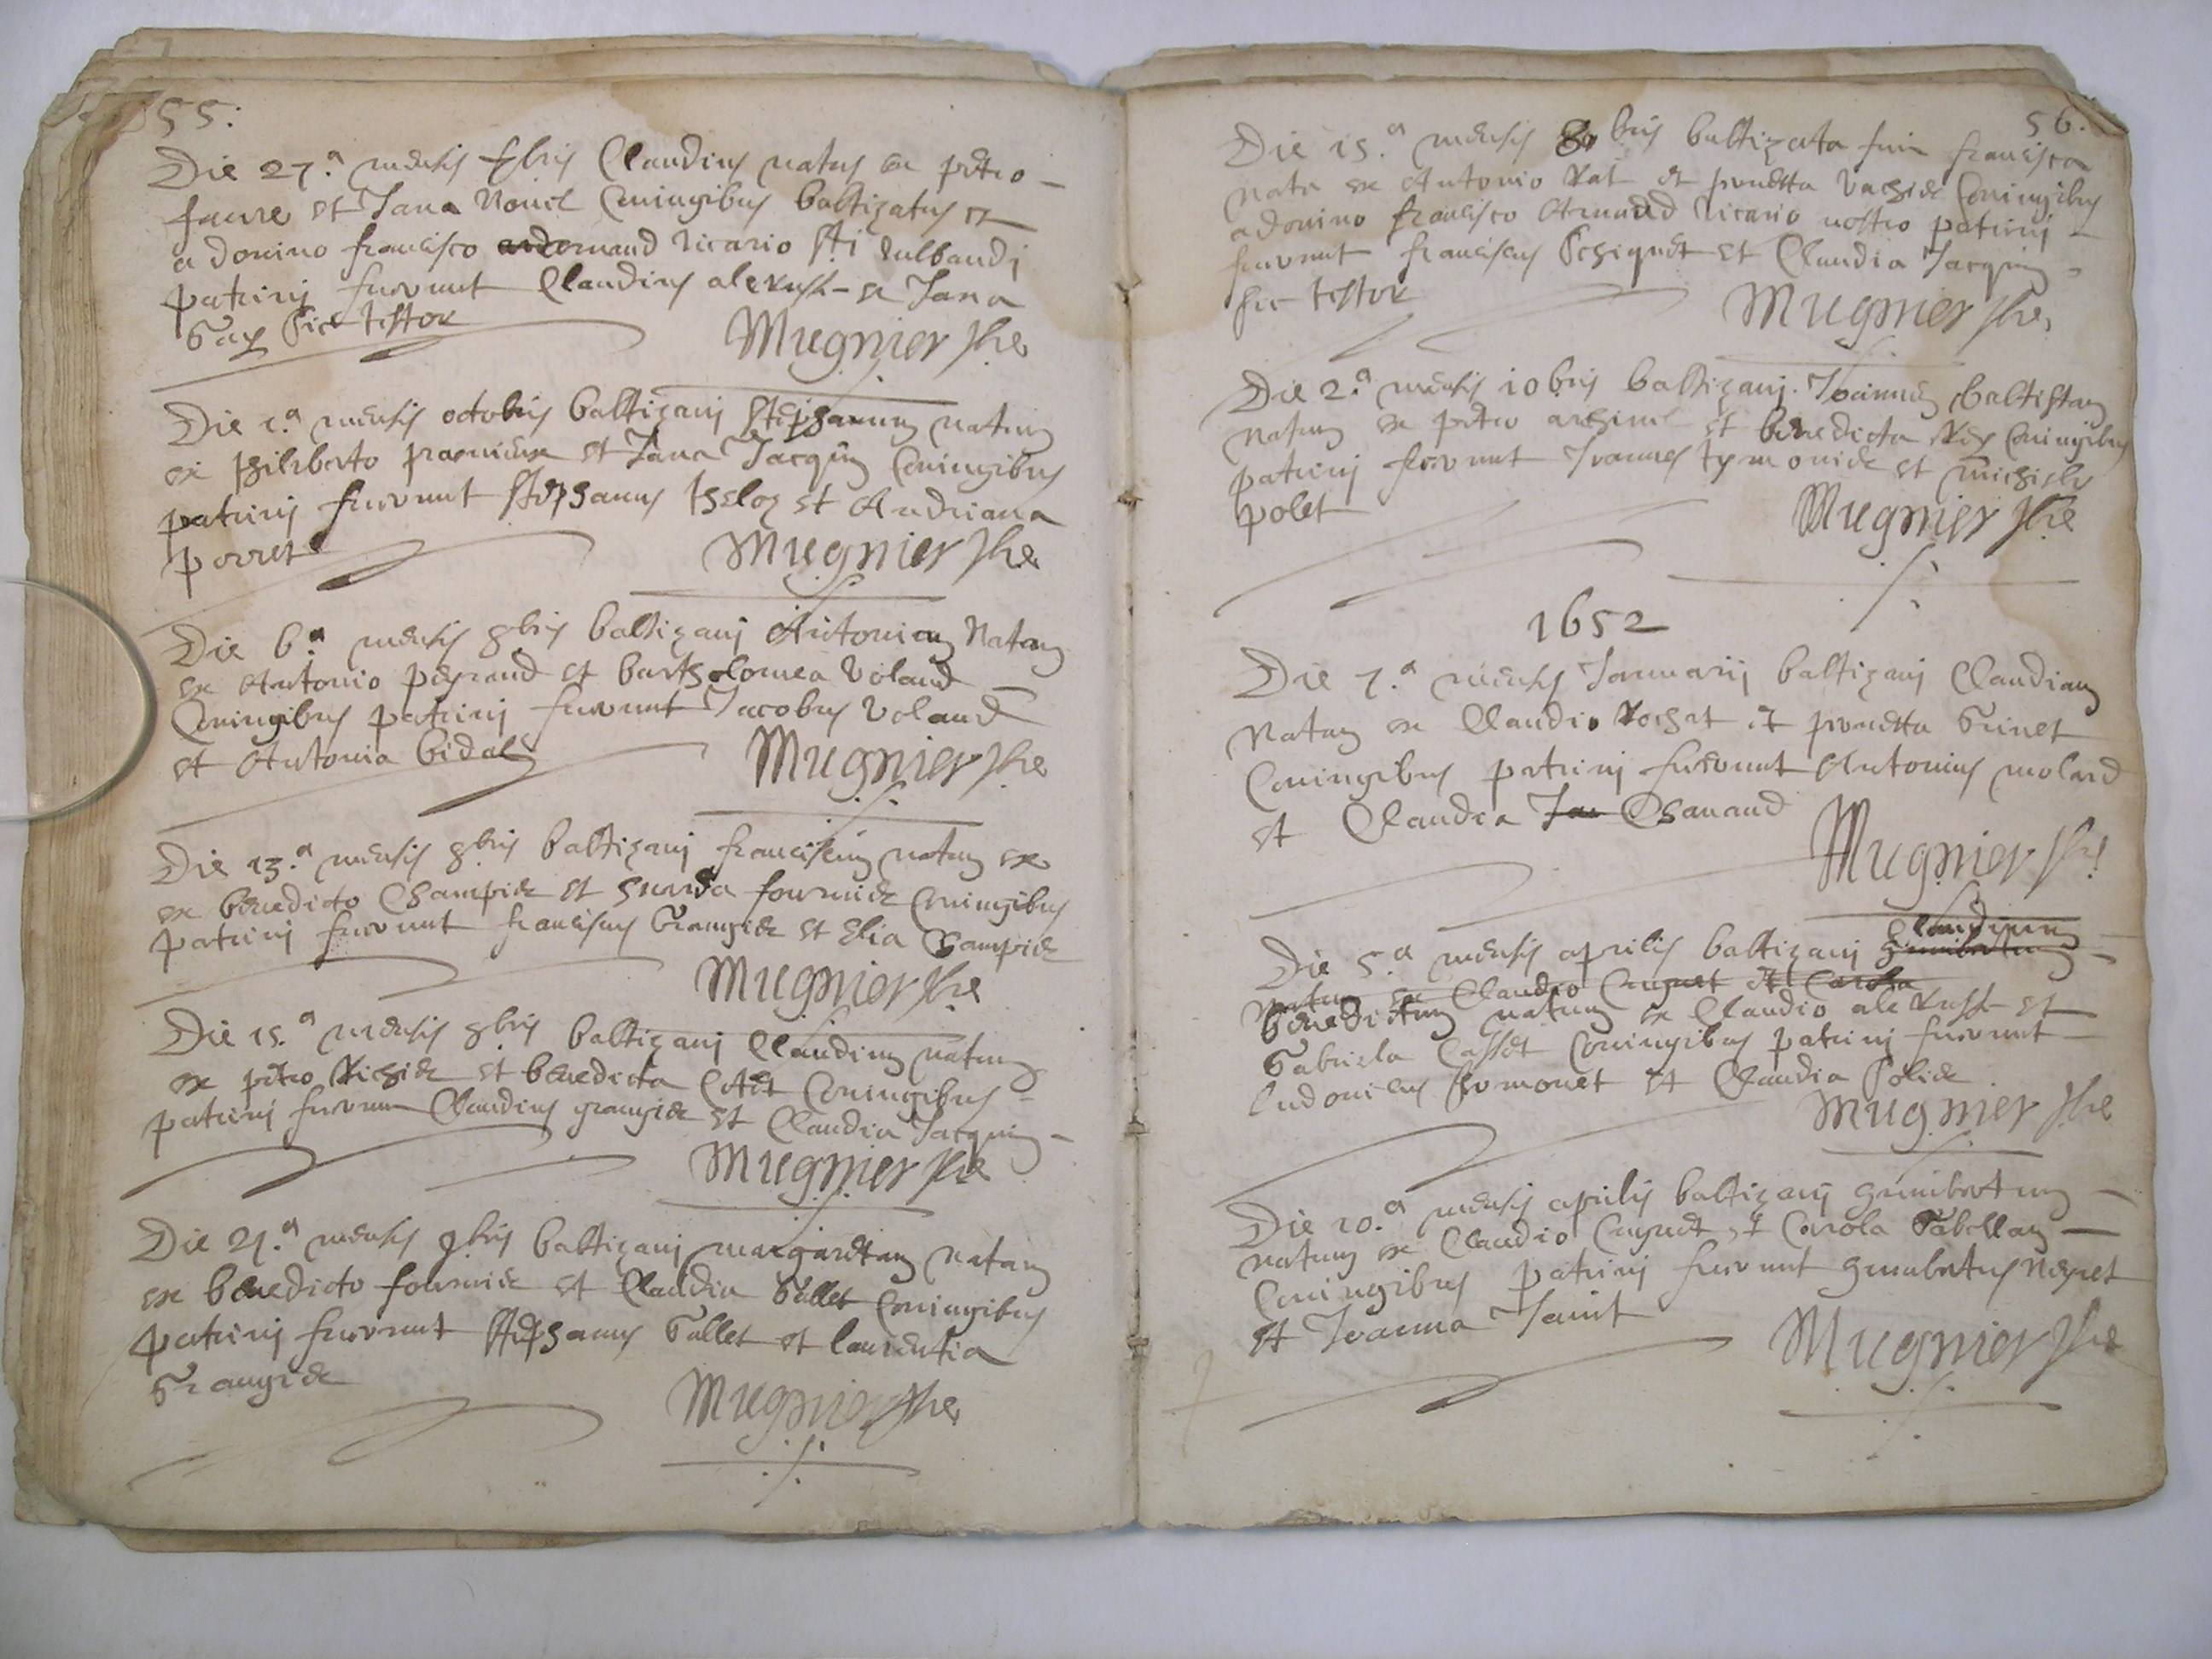 55:
Die 27.a mensis 7bris Claudius natus ex petro
faure et Jana Coniugibus baptizatus est
a domino francisco vicario sti
patrini fuerunt Claudius alexust et Jana
Gay sic testor Mugnier pbr
Die 1.a mensis octobris baptizavi stephanum natum
ex philiberto et Jana Jacquin Coniugibus
patrini fuerunt stephanus et Andriana
porret Mugnier pbr
Die 6.a mensis 8bris baptizavi Antoniam Natam
ex Antonio peyraud et bartholomea Voland
Coniugibus patrini fuerunt Jacobus Voland
et Antonia bidal Mugnier pbr
Die 13.a mensis 8bris baptizavi franciscum natum ex
ex benedicto Champier et fournier Coniugibus
patrini fuerunt franciscus Grangier et Elia Champier
Mugnier pbr
Die 15.a mensis 8bris baptizavi Claudium natum
ex petro Richier et benedicta Coniugibus
patrini fuerunt Claudius grangier et Claudia Jacquin
Mugnier pbr
Die 21.a mensis 9bris baptizavi margaretam natam
ex benedicto fournier et Claudia Gallet Coniugibus
patrini fuerunt stephanus Gallet et laurentia
Grangier
Mugnier pbr
56.
Die 15.a mensis bris baptizata fuit francisca
nata ex Antonio Rat et pernetta Vachier Coniugibus
a domino francisco vicario nostro patrini
fuerunt franciscus et Claudia Jacquin
sic testor Mugnier pbr
Die 2.a mensis 10bris baptizavi Joannem baptistam
natum ex petro et benedicta Rey Coniugibus
patrini fuerunt Joannes tymonier et
polet Mugnier pbr
1652
Die 7.a mensis Januarij baptizavi Claudiam
Natam ex Claudio Rochat et pernetta Grinet
Coniugibus patrini fuerunt Antonius molard
et Claudia Jac Chanaud
Mugnier pbr
Claudium
Die 5.a mensis aprilis baptizavi gunibertum
natum ex Claudio Cugnet et Carola
benedictum natum ex Claudio alexust et
Gabriela Casset Coniugibus patrini fuerunt
ludovicus et Claudia
Mugnier pbr
Die 10.a mensis aprilis baptizavi gunibertum
natum ex Claudio Cugnet et Carola
Coniugibus patrini fuerunt gunibertus Neyret
et Joanna Janit
Mugnier pbr